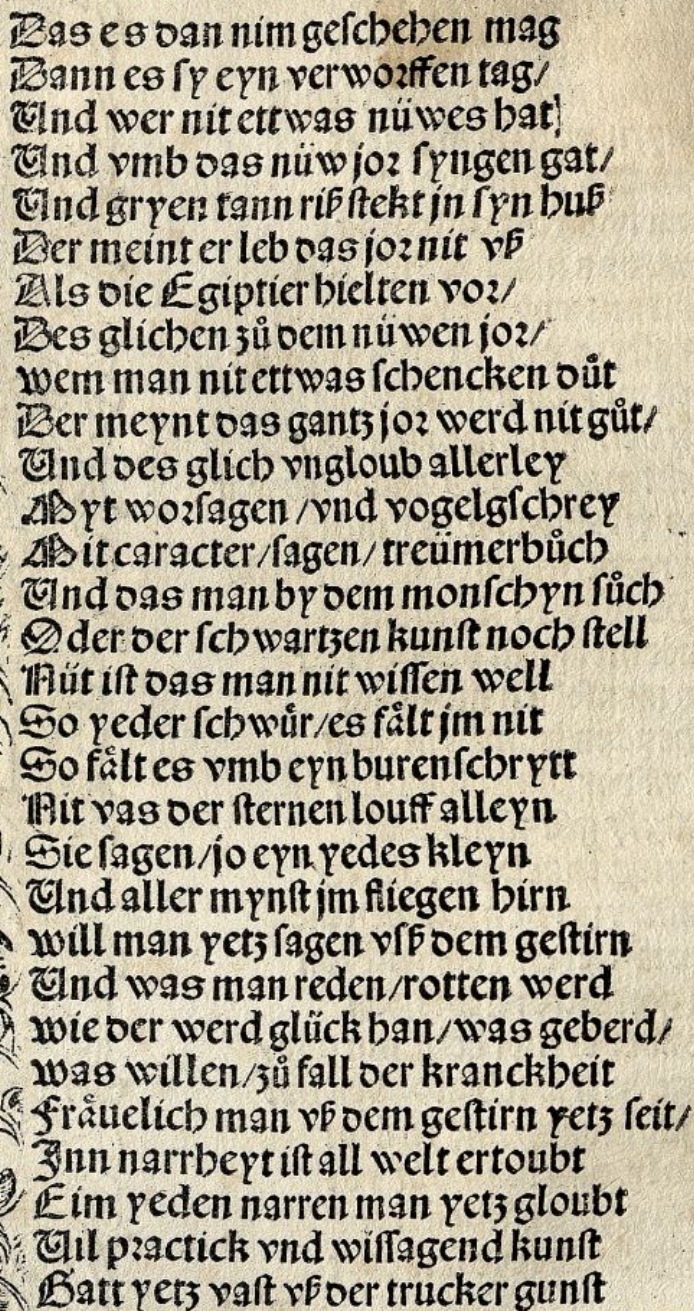 Das es dan nim geschehen mag
Dann es sy eyn verworffen tag/
Und wer nit ettwas nüwes hat/
Und vmb das nüw jor syngen gat/
Und gryen tann riß stekt jn syn huß
Der meint er leb das jor nit vß
Als die Egiptier hielten vor/
Des glichen zů dem nüwen jor/
wem man nit ettwas schencken důt
Der meynt das gantz jor werd nit gůt/
Und des glich vngloub allerley
Myt worsagen /vnd vogelgschrey
Mit caracter/sagen/treümerbůch
Und das man by dem monschyn sůch
Oder der schwartzen kunst noch stell
Nüt ist das man nit wissen well
So yeder schwůr/es fålt jm nit
So fålt es vmb eyn burenschrytt
Nit vas der sternen louff alleyn
Sie sagen/jo eyn yedes kleyn
Und aller mynst jm fliegen hirn
will man yetz sagen vsß dem gestirn
Und was man reden/rotten werd
wie der werd glück han/was geberd/
was willen/zů fall der kranckheit
Fråuelich man vß dem gestirn yetz seit/
Inn narrheyt ist all welt ertoubt
Eim yeden narren man yetz gloubt
Uil practick vnd wissagend kunst
Gatt yetz vast vß der trucker gunst